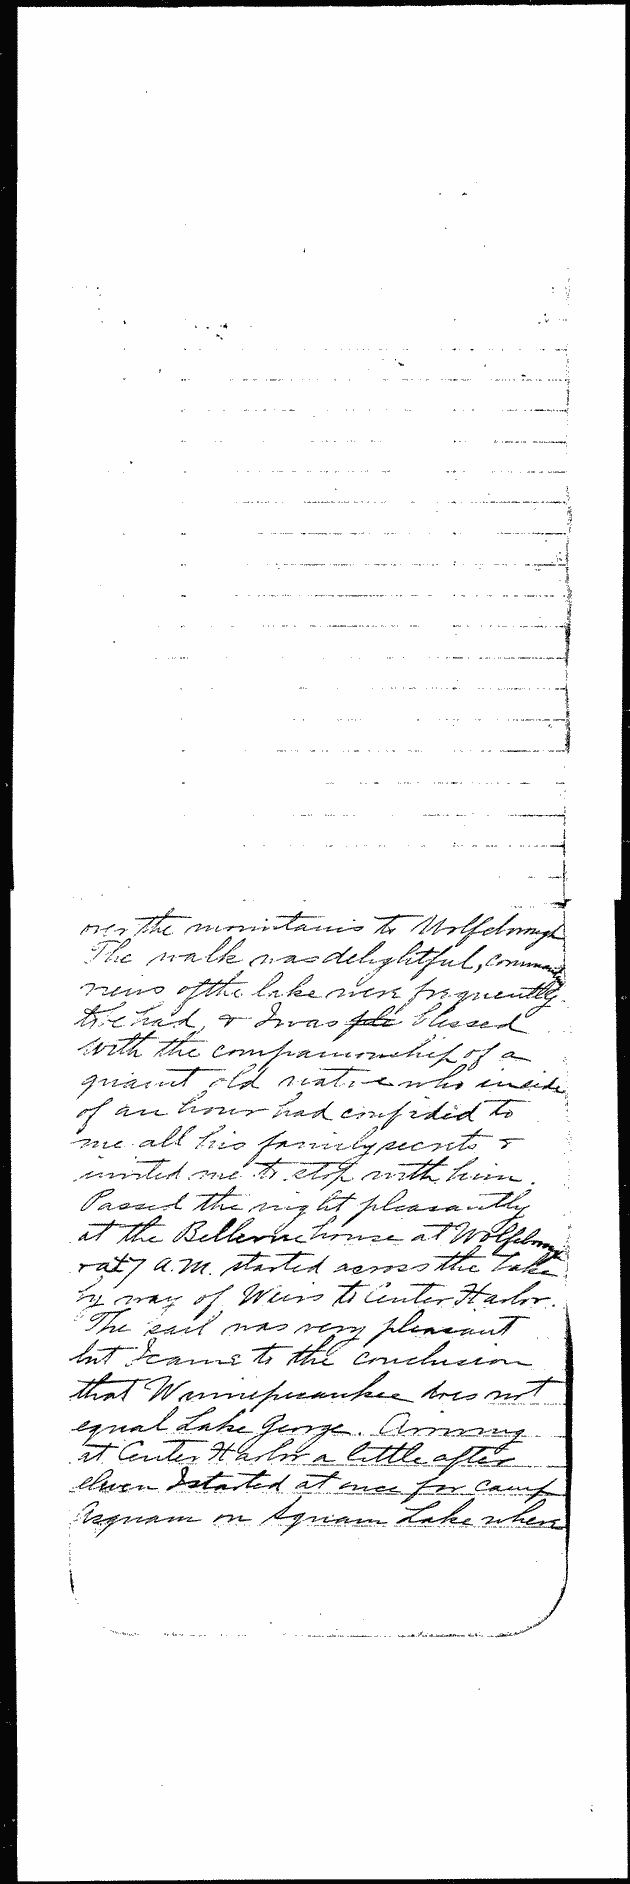 over the mountains to Wolfeborough
The walk was delightful, commanding
views of the lake were frequently
to be had, & I was ple blessed
with the companionship of a
quaint old native who inside
of an hour had confided to
me all his family secrets &
invited me to stop with him.
Passed the night pleasantly
at the Bellevue house at Wolfeboro
& at 7 A.M. started across the lake
by way of Weirs to Center Harbor.
The sail was very pleasant
but I came to the conclusion
that Winnepesaukee does not
equal Lake George. Arriving
at Center Harbor a little after
eleven I started at once for Camp
Asquam on Squam Lake where